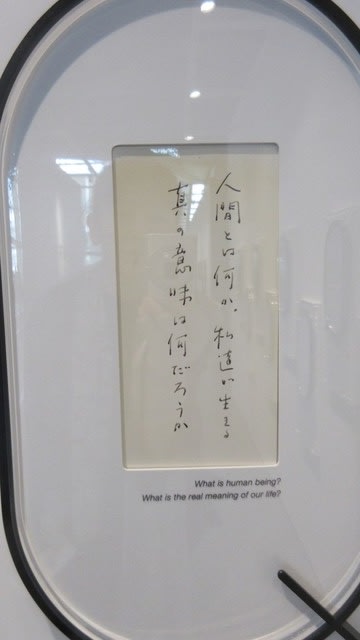 人間とは何か。私達が生きる
真の意味は何だろうか
What is human being?
What is the real meaning of our life?